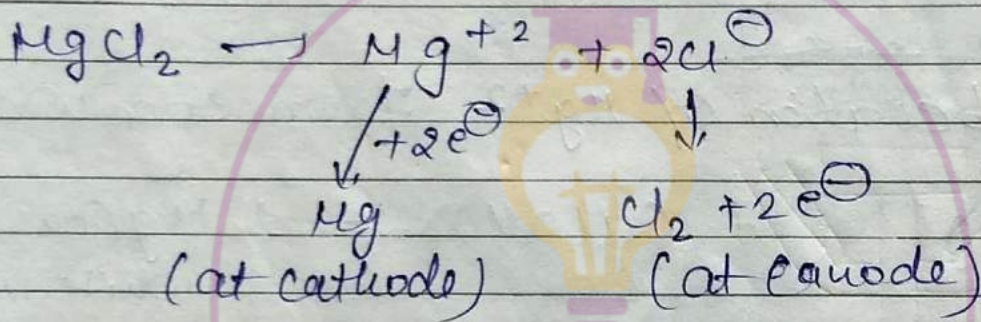 MgCl₂ → Mg⁺² + 2Cl⊖
↓ +2e⊖ ↓
Mg Cl₂ + 2e⊖
(at cathode) (at eanode)